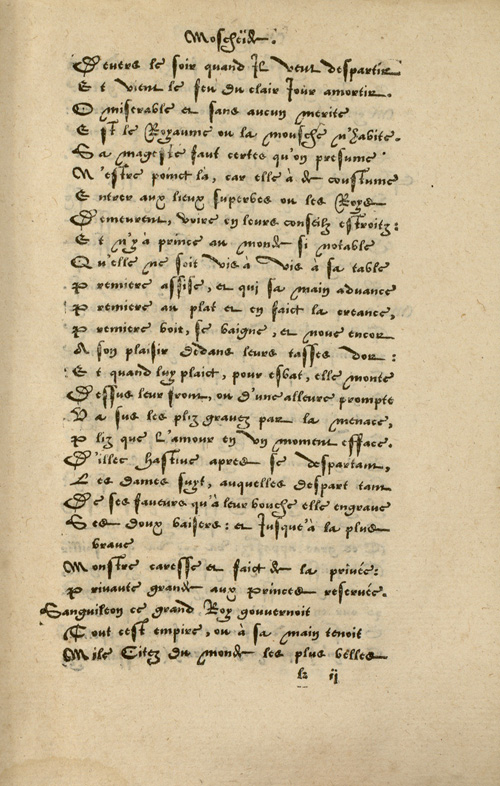 Moscheïde.
Devers le soir quand Il veut despartir
Et vient le feu du clair Jour amortir.
O miserable et sans aucun merite
Est le Royaume ou la mousche n'habite.
Sa mageste faut certes qu'on presume
N'estre poinct la, car elle à de coustume
Entrer aux lieux superbes ou les Roys
Demeurent, voire en leurs conseilz estroitz:
Et n'y à prince au monde si notable
Qu'elle ne soit vis à vis à sa table
Premiere assise, et qui sa main advance
Premiere au plat et en faict la creance,
Premiere boit, se baigne, et noue encor
A son plaisir dedans leurs tasses dor:
Et quand luy plaict, pour esbat, elle monte
Dessus leur front, ou d'une alleure prompte
Va sus les pliz gravez par la menace,
Pliz que l'amour en un moment efface.
D'illec hastive apres se despartant,
Les dames suyt, auquelles despart tant
De ses faveurs qu'à leur bouche elle engrave
Ses doux baisers: et Jusqu'à la plus
brave
Monstre caresse et faict de la privée:
Privauté grande aux princes reservée.
Sanguileon ce grand Roy gouvernoit
Tout cest empire, ou à sa main tenoit
Mile Citez du monde les plus belles
ij